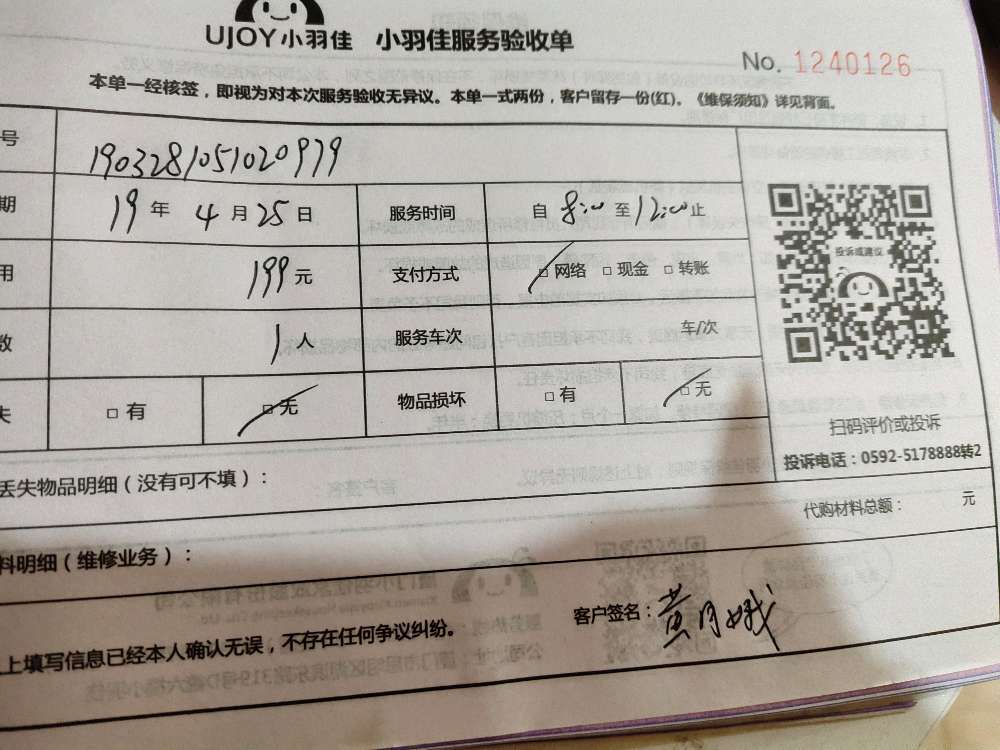 UJOY小羽佳 小羽佳服务验收单
No. 1240126
本单一经核签，即视为对本次服务验收无异议。本单一式两份，客户留存一份(红)。《维保须知》详见背面。
号 1903281051020979
期 19年 4月25日 服务时间 自 8:00 至 12:00 止
用 199元 支付方式 □网络 □现金 □转账
数 1人 服务车次 车/次
失 □有 □无 物品损坏 □有 □无
投诉或建议
扫码评价或投诉
投诉电话：0592-5178888转2
丢失物品明细（没有可不填）：
代购材料总额： 元
料明细（维修业务）：
上填写信息已经本人确认无误，不存在任何争议纠纷。
客户签名：黄月娥